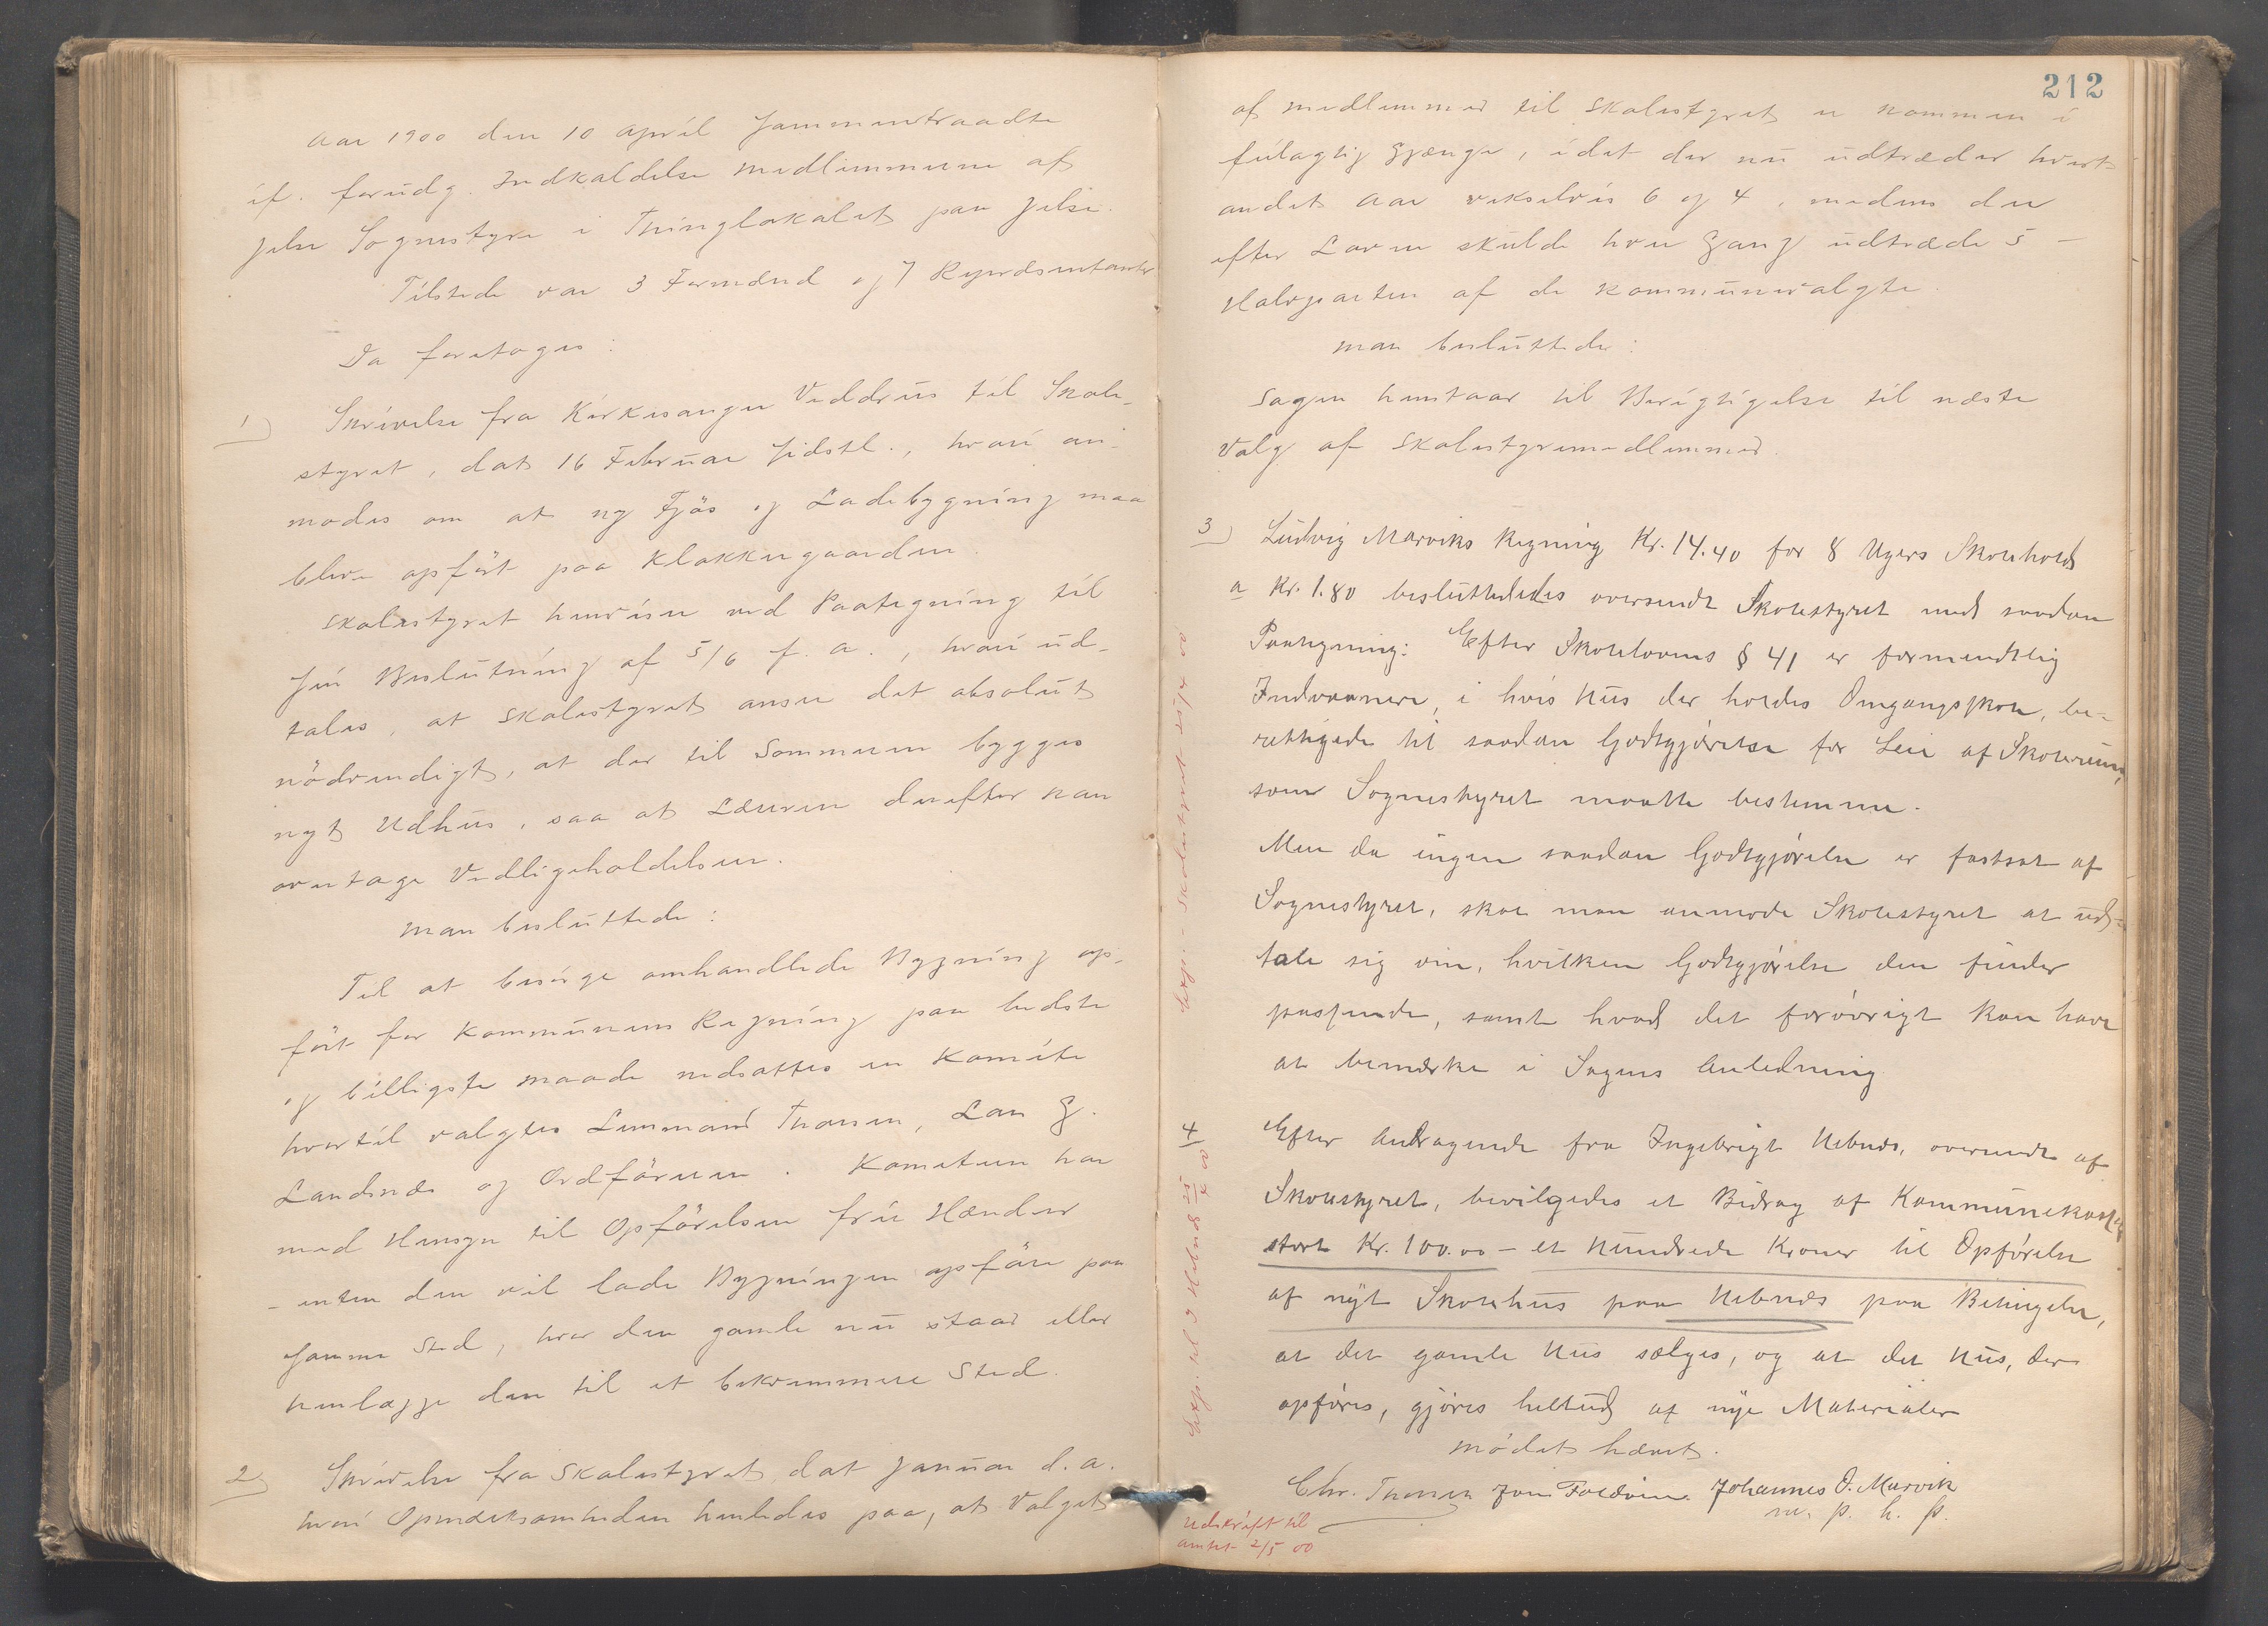 Aar 1900 den 10 April sammentraadte
if. forudg. Indkaldelse Medlemmerne af
Jelse Sognestyre i Thinglokalet paa Jelse.
Tilstede var 3 Formænd og 7 Repræsentanter
Da foretoges:
1) Skrivelse fra Kirkesanger Veddrus til Skole-
styret, dat 16 Februar sidstl., hvori an-
modes om at ny Fjös og Ladebygning maa
blive opfört paa Klokkergaarden.
Skolestyret henviser ved Paategning til
sin Beslutning af 5/6 f. a., hvori ud-
tales, at Skolestyret anser det absolut
nödvendigt, at der til Sommeren bygges
nyt Udhus, saa at Læreren derefter kan
overtage Vedligeholdelsen.
Man besluttede:
Til at besörge omhandlede Bygning op-
fört for Kommunens Regning paa bedste
og billigste Maade nedsattes en Komite
hvortil valgtes Lensmand Thorsen, Lars G.
Landsnæs og Ordföreren. Komiteen har
med Hensyn til Opförelsen frie Hænder
- enten den vil lade Bygningen opföre paa
samme Sted, hvor den gamle nu staar eller
henlægge den til et bekvemmere Sted.
2) Skrivelse fra Skolestyret, dat Januar d. a.
hvori Opmærksomheden henledes paa, at Valget
212
af Medlemmer til Skolestyret er kommen i
feilagtig Gjænge, idet der nu udtræder hvert-
andet Aar vekselvis 6 og 4, medens der
efter Loven skulde hver Gang udtræde 5 -
Halvparten af de kommunevalgte.
Man besluttede:
Sagen henstaar til Berigtigelse til næste
Valg af Skolestyremedlemmer.
3) Ludvig Marviks Regning Kr. 14.40 for 8 Ugers Skolehold
a Kr. 1.80 besluttededes oversendt Skolestyret med saadan
Paategning: Efter Skolelovens § 41 er formendtlig
Indvaanere, i hvis Hus der holdes Omgangsskole, be-
rettigede til saadan Godtgjörelse for Leie af Skolerum,
som Sognestyret maatte bestemme.
Men da ingen saadan Godtgjörelse er fastsat af
Sognestyret, skal man anmode Skolestyret at ud-
tale sig om, hvilken Godtgjörelse den finder
passende, samt hvad det forövrigt kan have
at bemærke i Sagens Anledning
4 Efter Andragende fra Ingebrigt Hebnes, oversendt af
Skolestyret, bevilgedes et Bidrag af Kommunekassen
stort Kr. 100.00 - et Hundrede Kroner til Opförelse
af nyt Skolehus paa Hebnes paa Betingelse,
at det gamle Hus sælges, og at det Hus, der
opföres, gjöres heltud af nye Materialer
Mödet hævet.
Chr. Thorsen Johannes O. Marvik
m. p. h. p.
Exp. - Skolestyret 25/4 00
Exp. til I Hebnes 25/4 00
Udskrift til
amtet 2/5 00